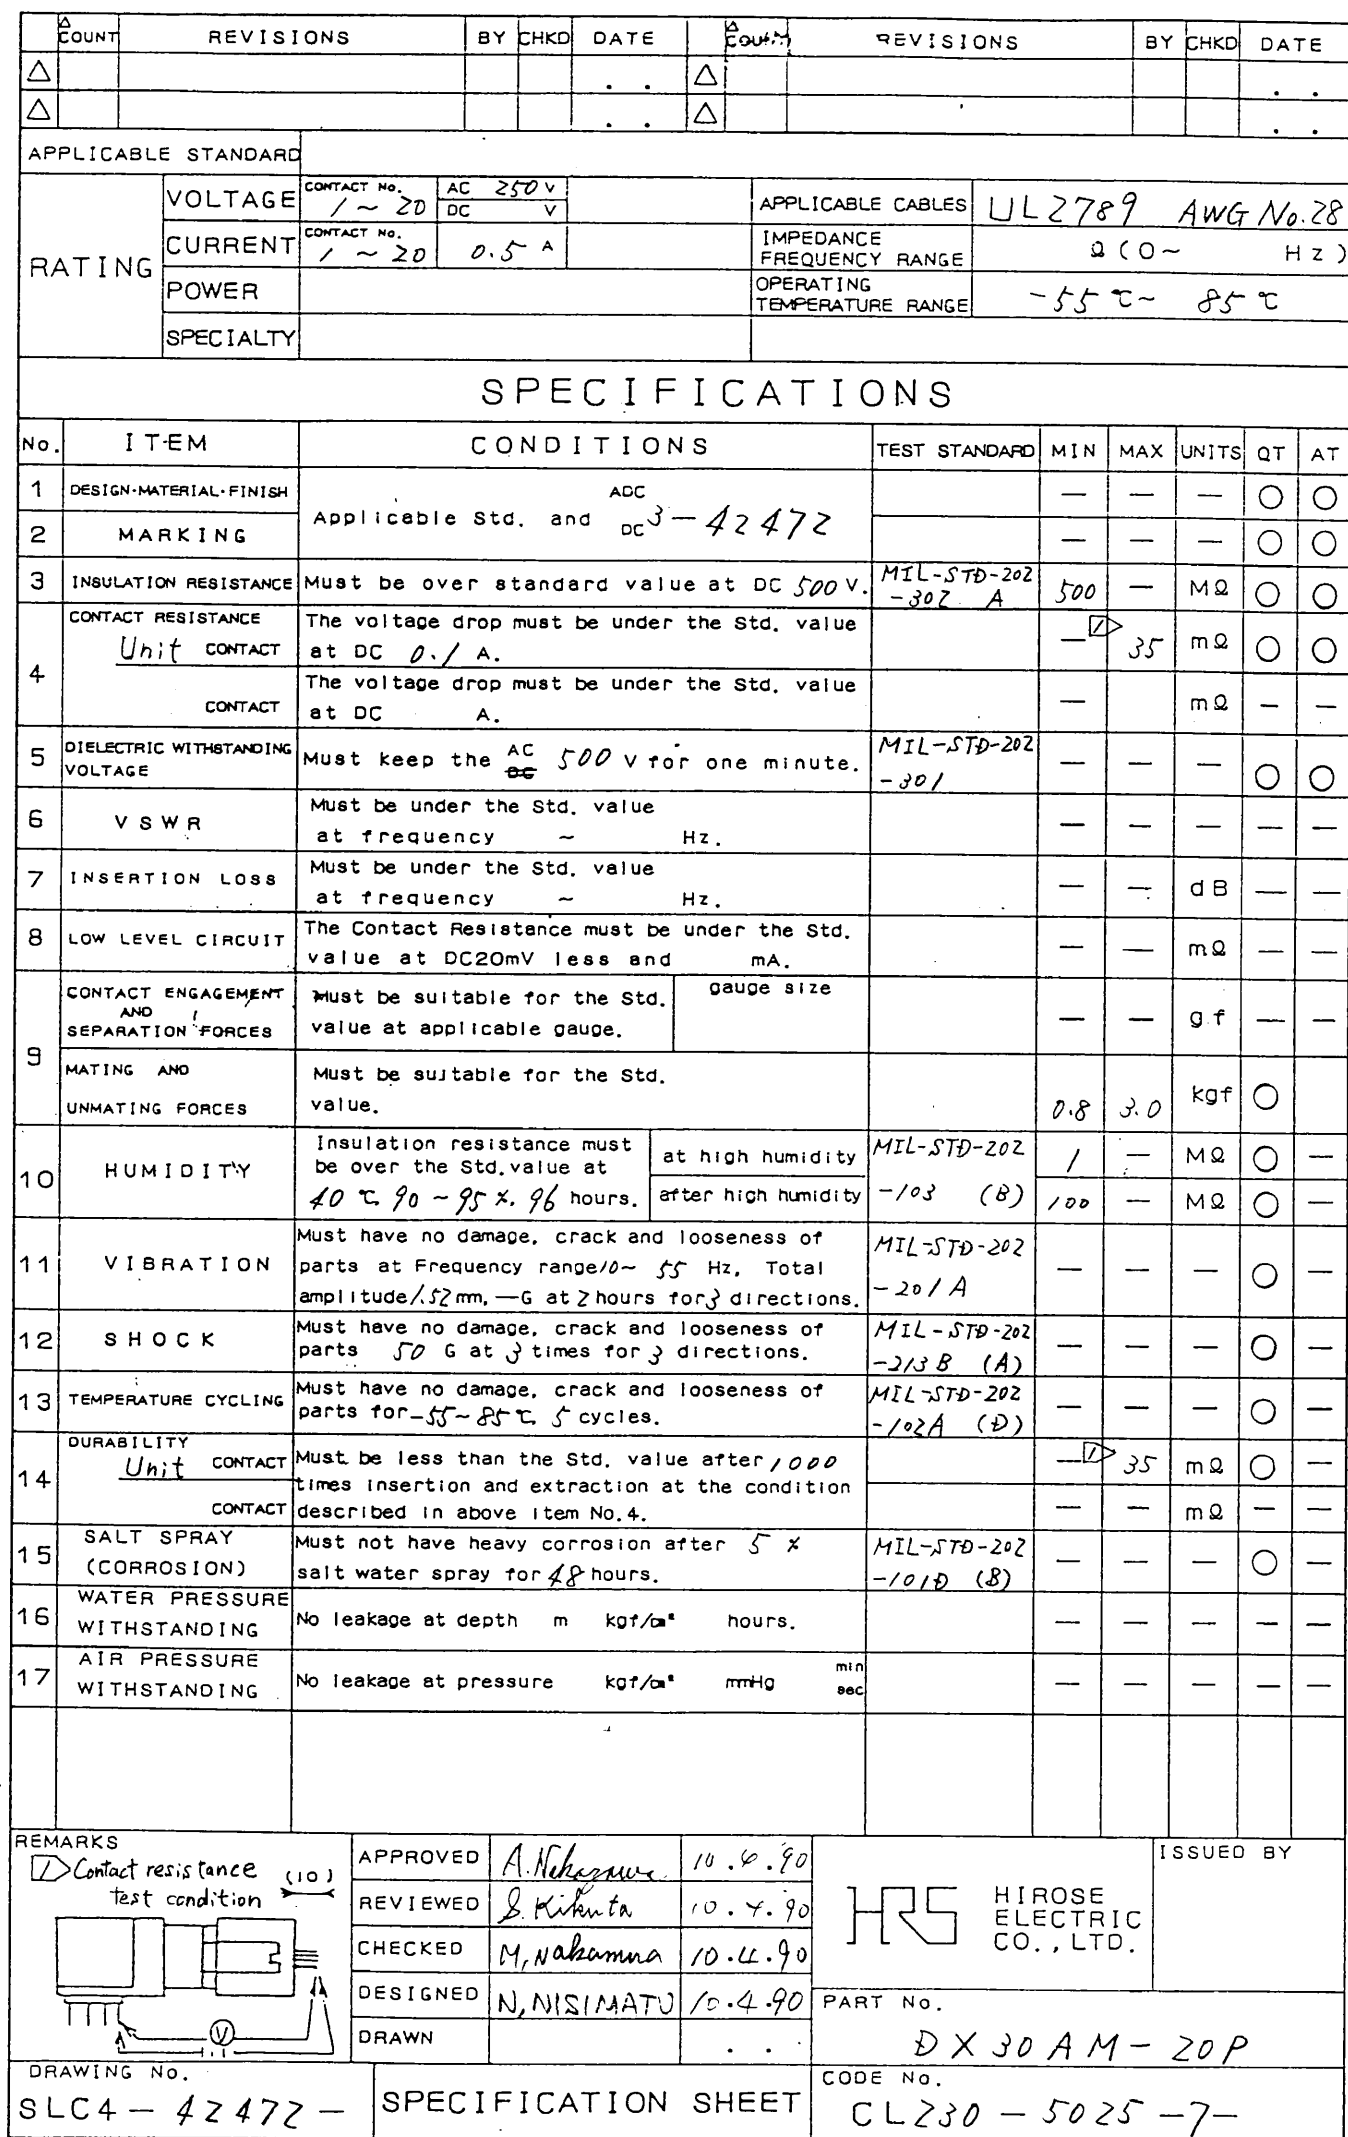 △ COUNT REVISIONS BY CHKD DATE △ COUNT REVISIONS BY CHKD DATE
△ . . △ . .
△ . . △ . .
APPLICABLE STANDARD
RATING
VOLTAGE CONTACT No. 1 ~ 20 AC 250 V DC V
APPLICABLE CABLES UL2789 AWG No.28
CURRENT CONTACT No. 1 ~ 20 0.5 A
IMPEDANCE FREQUENCY RANGE Ω (0~ Hz)
POWER
OPERATING TEMPERATURE RANGE -55 ℃~ 85 ℃
SPECIALTY
SPECIFICATIONS
No. ITEM CONDITIONS TEST STANDARD MIN MAX UNITS QT AT
1 DESIGN·MATERIAL·FINISH — — — ○ ○
Applicable Std. and ADC DC 3-42472
2 MARKING — — — ○ ○
3 INSULATION RESISTANCE Must be over standard value at DC 500 V. MIL-STD-202 -302 A 500 — MΩ ○ ○
4 CONTACT RESISTANCE
Unit CONTACT The voltage drop must be under the Std. value at DC 0.1 A. — 1 35 mΩ ○ ○
CONTACT The voltage drop must be under the Std. value at DC A. — mΩ — —
5 DIELECTRIC WITHSTANDING VOLTAGE Must keep the AC DC 500 V for one minute. MIL-STD-202 -301 — — — ○ ○
6 VSWR Must be under the Std. value at frequency ~ Hz. — — — — —
7 INSERTION LOSS Must be under the Std. value at frequency ~ Hz. — — dB — —
8 LOW LEVEL CIRCUIT The Contact Resistance must be under the Std. value at DC20mV less and mA. — — mΩ — —
9 CONTACT ENGAGEMENT AND SEPARATION FORCES Must be suitable for the Std. value at applicable gauge. gauge size — — g f — —
MATING AND UNMATING FORCES Must be suitable for the Std. value. 0.8 3.0 kgf ○
10 HUMIDITY Insulation resistance must be over the Std. value at 40 ℃ 90 ~ 95 %. 96 hours.
at high humidity MIL-STD-202 1 — MΩ ○ —
after high humidity -103 (B) 100 — MΩ ○ —
11 VIBRATION Must have no damage, crack and looseness of parts at Frequency range 10~ 55 Hz, Total amplitude 1.52 mm, — G at 2 hours for 3 directions. MIL-STD-202 -201A — — — ○ —
12 SHOCK Must have no damage, crack and looseness of parts 50 G at 3 times for 3 directions. MIL-STD-202 -213B (A) — — — ○ —
13 TEMPERATURE CYCLING Must have no damage, crack and looseness of parts for -55~85 ℃ 5 cycles. MIL-STD-202 -102A (D) — — — ○ —
14 DURABILITY
Unit CONTACT Must be less than the Std. value after 1000 — 1 35 mΩ ○ —
times insertion and extraction at the condition
CONTACT described in above item No.4. — — mΩ — —
15 SALT SPRAY (CORROSION) Must not have heavy corrosion after 5 % salt water spray for 48 hours. MIL-STD-202 -101D (B) — — — ○ —
16 WATER PRESSURE WITHSTANDING No leakage at depth m kgf/cm² hours. — — — — —
17 AIR PRESSURE WITHSTANDING No leakage at pressure kgf/cm² mmHg min sec — — — — —
REMARKS
1 Contact resistance test condition (10)
V
APPROVED A. Nakazawa 10.4.90
REVIEWED S. Kikuta 10.4.90
CHECKED M, Nakamura 10.4.90
DESIGNED N, NISIMATU 10.4.90
DRAWN . .
HRS HIROSE ELECTRIC CO., LTD.
ISSUED BY
PART No.
DX30AM-20P
DRAWING No.
SLC4-42472-
SPECIFICATION SHEET
CODE No.
CL230-5025-7-